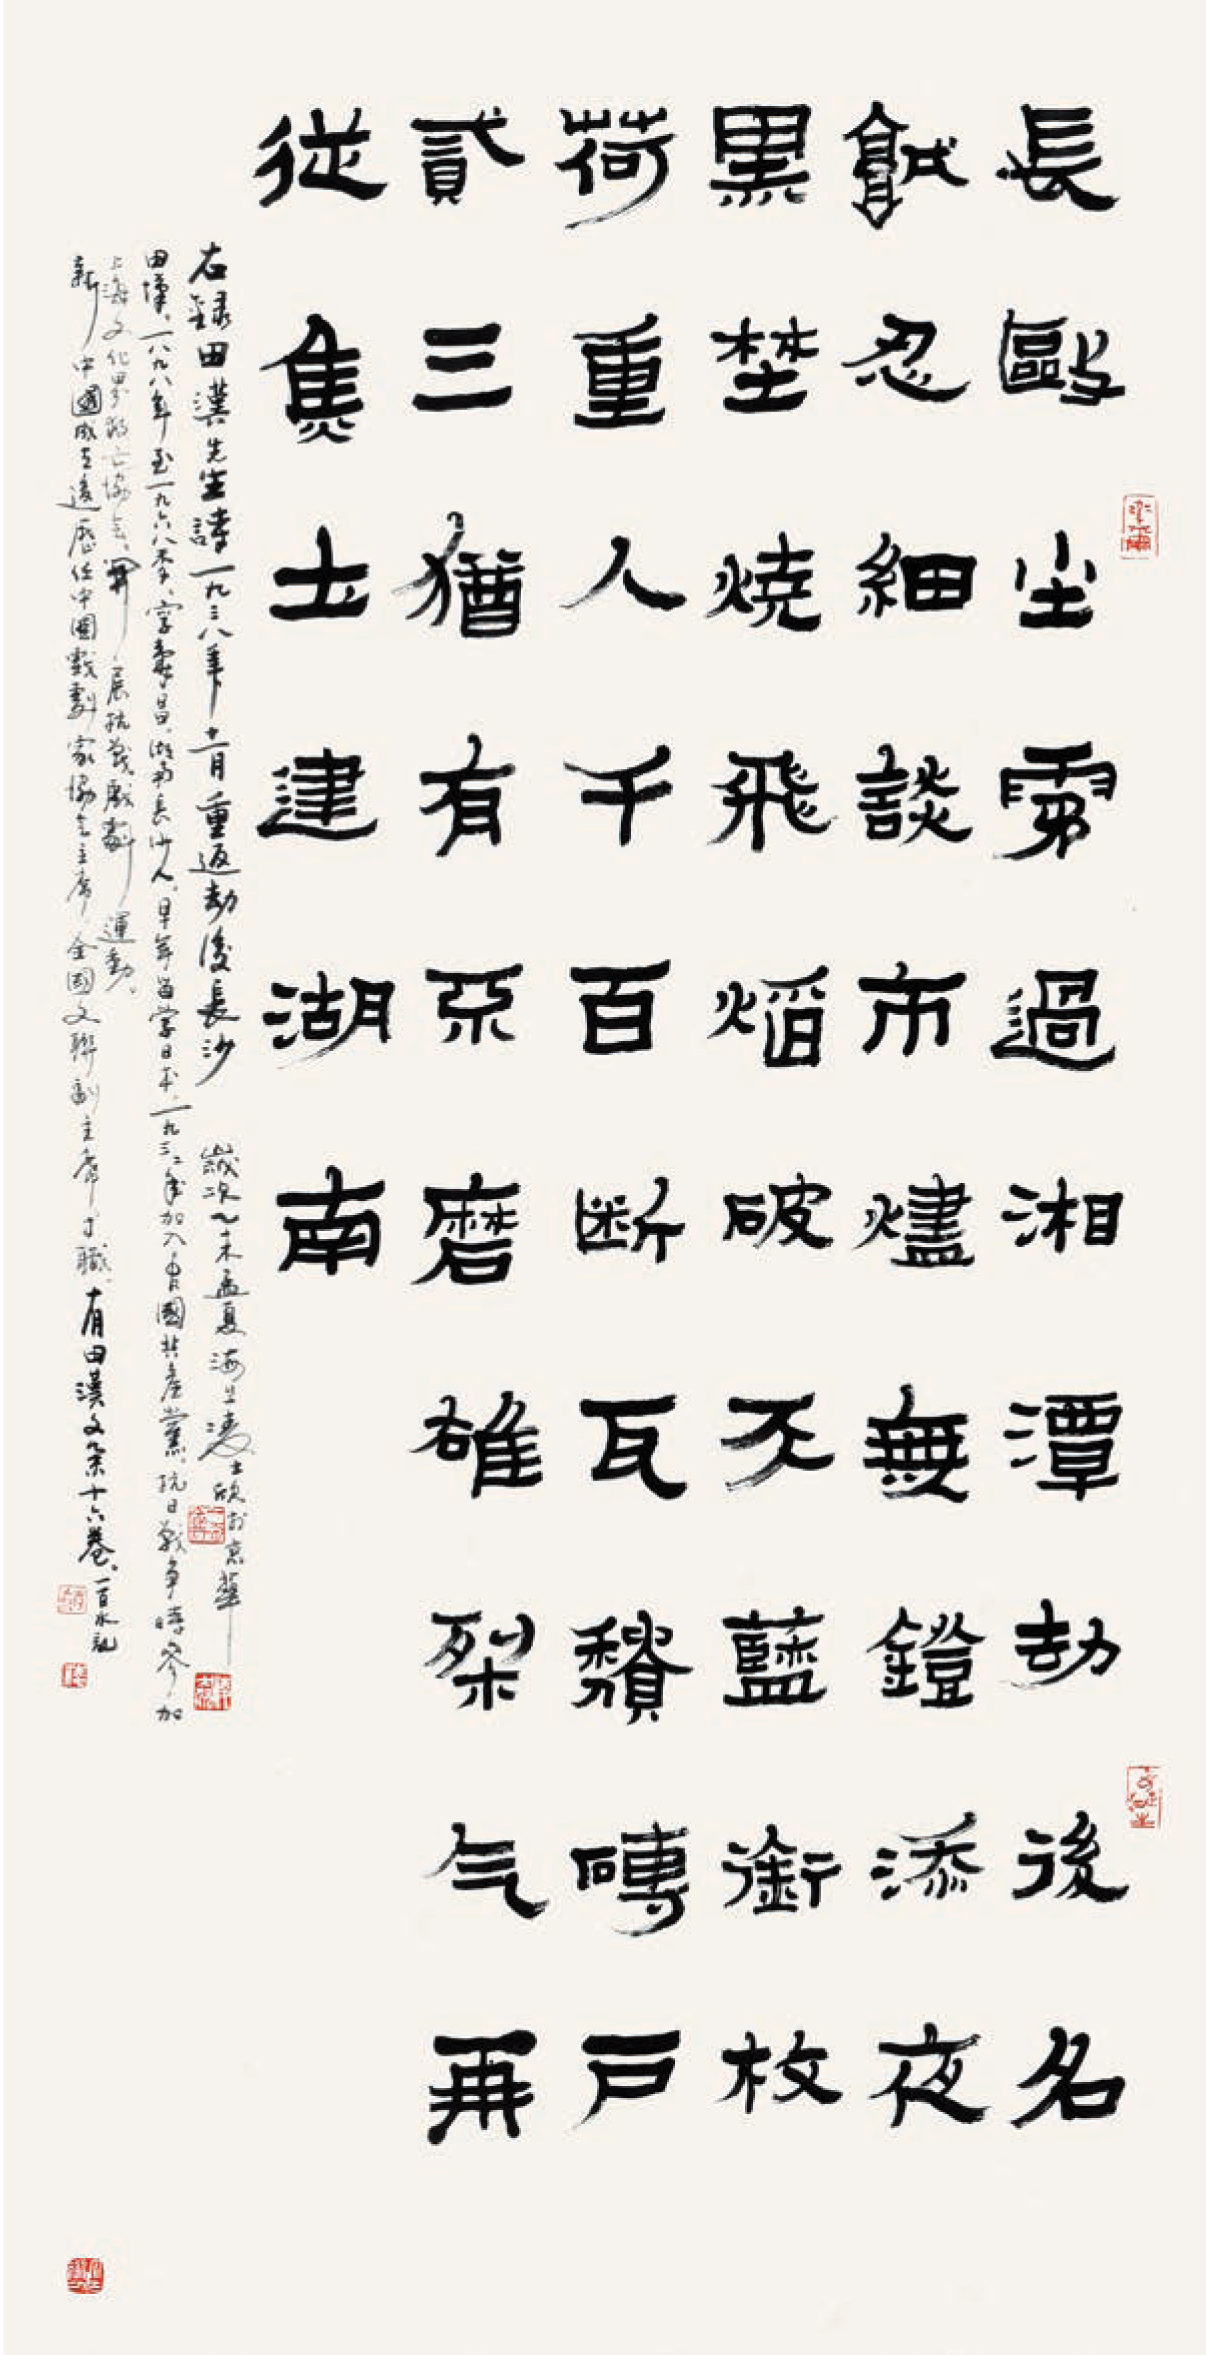 長敺尘雾過湘潭劫後名
城忍細談市燼無鐙添夜
黑埜燒飛焰破天藍銜枚
荷重人千百断瓦頹磚戶
貳三猶有不磨雄桀气再
從焦土建湖南
右録田漢先生詩一九三八年十一月重返劫後長沙 歲次乙未孟夏海上凌士欣於京華
田漢、一八九八年至一九六八年、字壽昌、湖南長沙人、早年留学日本、一九三二年加入中國共產黨、抗日戰争時參加
上海文化界救亡協会、開展抗戰戲劇運動。
新中國成立後歷任中國戲劇家協会主席、全國文聯副主席等職。有田漢文集十六卷。